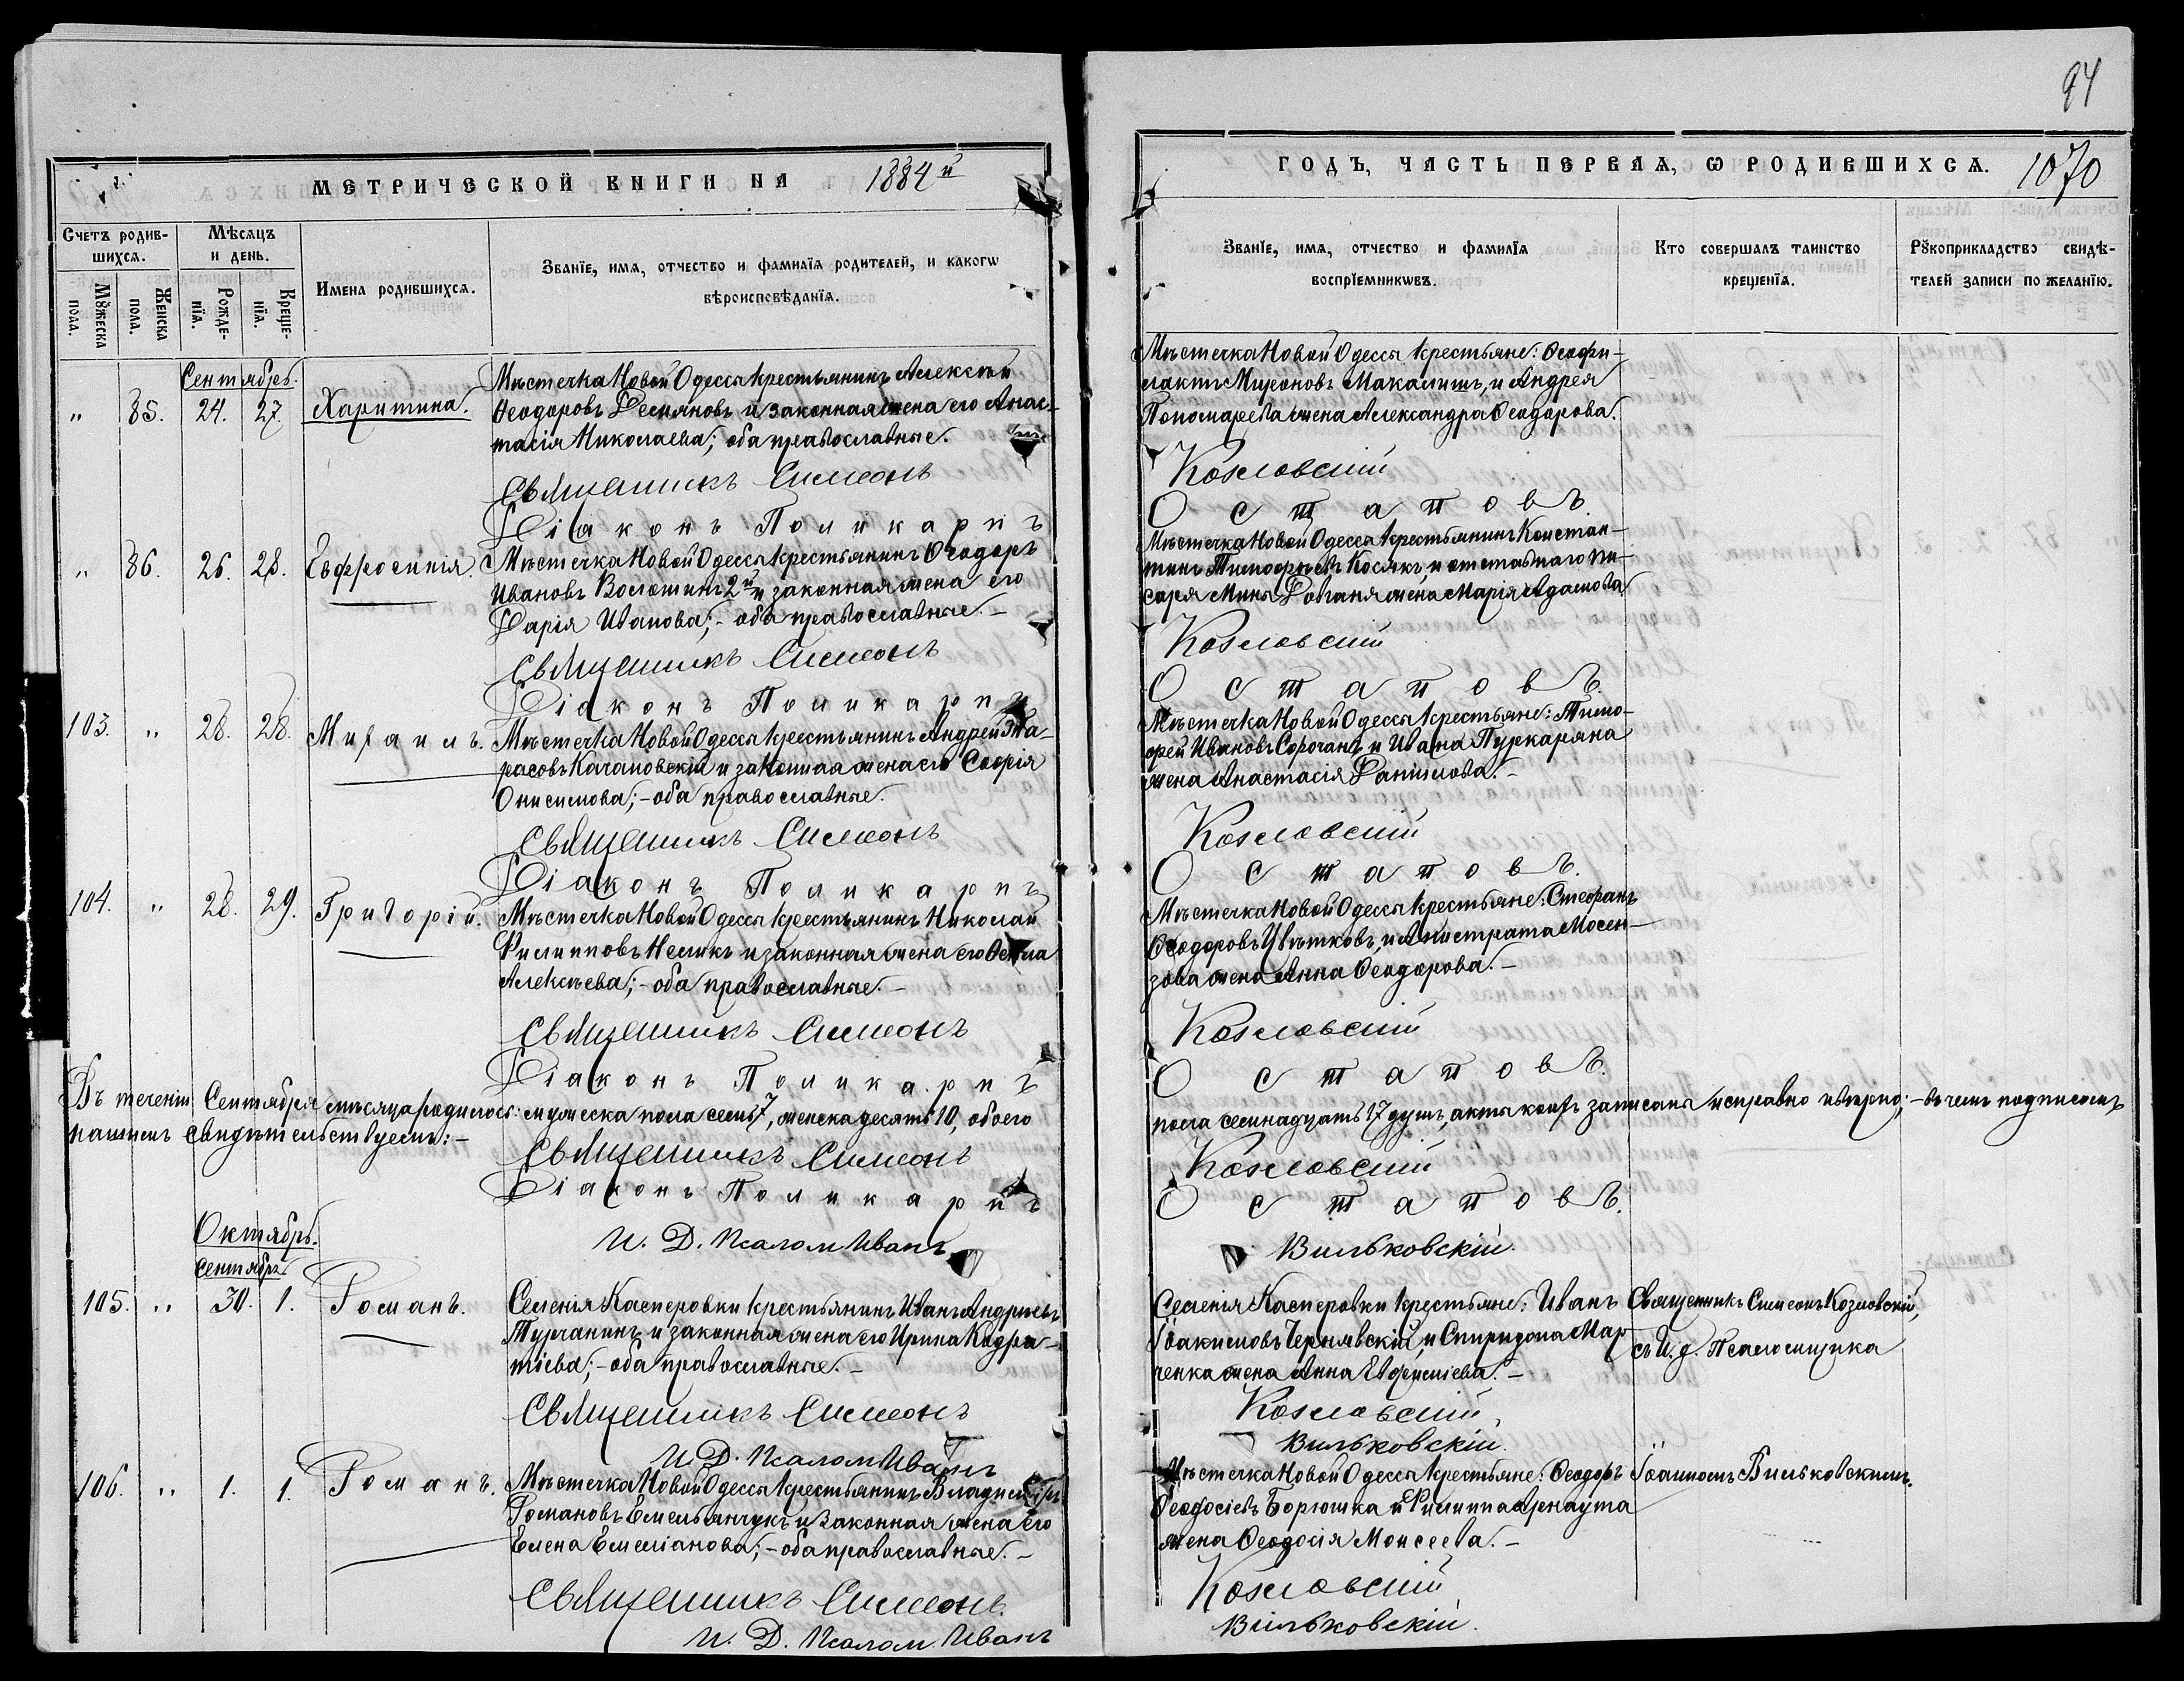 94
МЕТРИЧЕСКОЙ КНИГИ НА 1884й
ГОДЪ, ЧАСТЬ ПЕРВАЯ, Ѡ РОДИВШИХСѦ. 1070
Счетъ родив-
шихсѧ.
Мѣсѧцъ
и день.
Мꙋжеска
пола.
Женска
пола.
Рожде-
нїѧ.
Креще-
нїѧ.
Имена родившихсѧ.
Званїе, имѧ, отчество и фамилїѧ родителей, и какогѡ
вѣроисповѣданїѧ.
Званїе, имѧ, отчество и фамилїѧ
воспрїемникѡвъ.
Кто совершалъ таинство
крещенїѧ.
Рꙋкоприкладство свидѣ-
телей записи по желанїю.
Сентябрь.
" 85. 24. 27. Харитина.
Мѣстечка Новой Одессы крестьянинъ Алексѣй
Ѳеодоровъ Демяновъ и законная жена его Анас-
тасія Николаева; оба православные.
Мѣстечка Новой Одессы крестьяне: Ѳеофи-
лактъ Мироновъ Макалишъ, и Андрея
Пономарева жена Александра Ѳеодорова.
Священникъ Симеонъ Козловскій
Діаконъ Поликарпъ Остаповъ.
" 86. 26. 28. Евфросинія.
Мѣстечка Новой Одессы крестьянинъ Ѳеодоръ
Ивановъ Волошинъ 2й и законная жена его
Дарія Иванова; - оба православные. -
Мѣстечка Новой Одессы крестьянинъ Констан-
тинъ Тимофѣевъ Косякъ, и отставнаго пи-
саря Мины Довганя жена Марія Адамова
Священникъ Симеонъ Козловскій
Діаконъ Поликарпъ Остаповъ.
103. " 28. 28. Михаилъ.
Мѣстечка Новой Одессы крестьянинъ Андрей Та-
расовъ Качановскій и законная жена его Софія
Онисимова; - оба православные.
Мѣстечка Новой Одессы крестьяне: Тимо-
фей Ивановъ Сорочанъ и Ивана Пушкаряна
жена Анастасія Даниилова. -
Священникъ Симеонъ Козловскій
Діаконъ Поликарпъ Остаповъ.
104. " 28. 29. Григорій.
Мѣстечка Новой Одессы крестьянинъ Николай
Филипповъ Нешикъ и законная жена его
Алексѣева; - оба православные. -
Мѣстечка Новой Одессы крестьяне: Стефанъ
Ѳеодоровъ Цвѣтковъ, и Анистрата Мосен-
зова жена Анна Ѳеодорова. -
Священникъ Симеонъ Козловскій
Діаконъ Поликарпъ Остаповъ.
Въ теченіи Сентября мѣсяца родилось: мужеска пола семь 7, женска десять 10, обоего
пола семнадцать 17 душъ, акты коихъ записаны исправно и вѣрно; - въ чемъ подписомъ
нашимъ свидѣтельствуемъ: -
Священникъ Симеонъ Козловскій
Діаконъ Поликарпъ Остаповъ.
И. Д. Псалом Иванъ Вильковскій.
Октябрь.
Сентябрь
105. " 30. 1. Романъ.
Селенія Касперовки крестьянинъ Иванъ Андреевъ
Турчанинъ и законная жена его Ирина Кодра-
тіева; - оба православные. -
Селенія Касперовки крестьяне: Иванъ
Іоакимовъ Чернявскій, и Спиридона Мар-
ченка жена Анна Евфиміева. -
Священникъ Симеонъ Козловскій,
съ И. д. Псаломщика
Священникъ Симеонъ Козловскій
И. Д. Псалом Иванъ Вильковскій.
106. " 1. 1. Романъ.
Мѣстечка Новой Одессы крестьянинъ Владиміръ
Романовъ Емельянчукъ и законная жена его
Елена Емеліанова; - оба православные. -
Мѣстечка Новой Одессы крестьяне: Ѳеодоръ
Ѳеодосіевъ Борюшка и Филиппа Арнаута
жена Ѳеодосія Моисеева. -
Іоанномъ Вильковскимъ.
Священникъ Симеонъ Козловскій
И. Д. Псалом Иванъ Вильковскій.